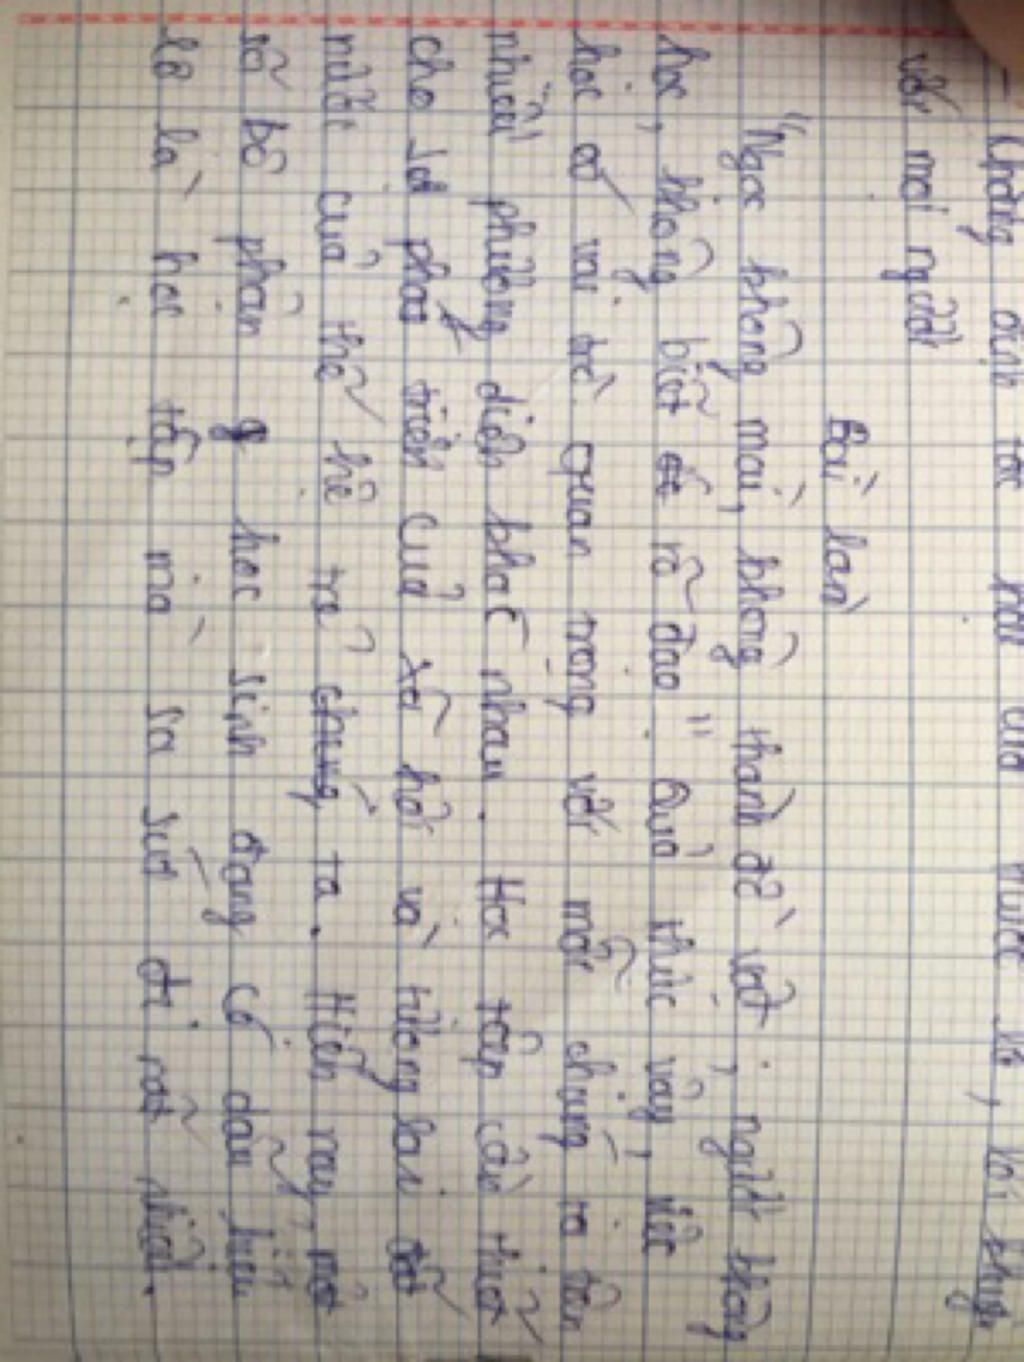 - Khẳng định tác hại của mình là, lời khuyên
với mọi người
Bài làm
"Ngọc không mài, không thành đồ vật; người không
học, không biết rõ đạo". Quả thực vậy, việc
học có vai trò quan trọng với mỗi chúng ta trên
nhiều phương diện khác nhau. Học tập cần thiết
cho sự phát triển của xã hội và tương lai đất
nước của thế hệ trẻ chúng ta. Hiện nay, một
số bộ phận học sinh đang có dấu hiệu
lơ là học tập mà sa sút đi rất nhiều.